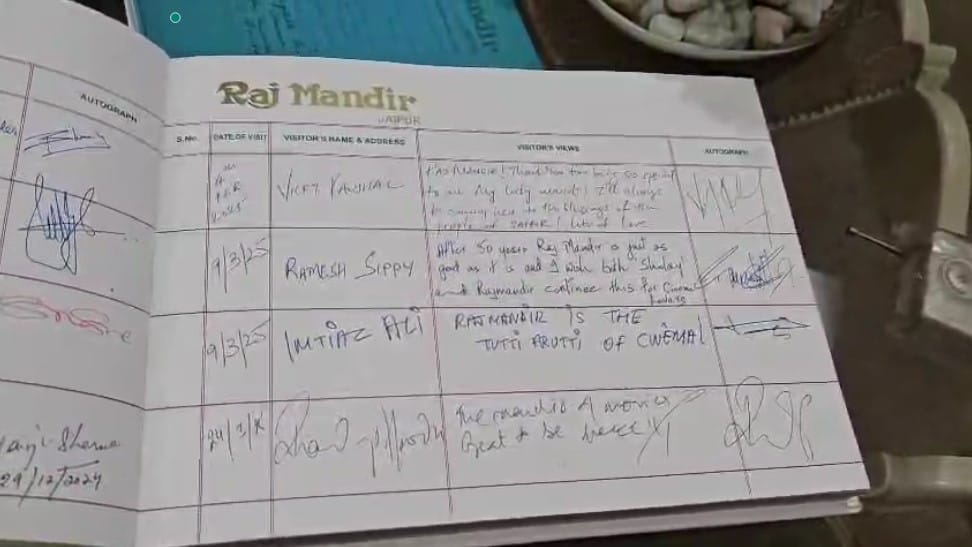 Raj Mandir
JAIPUR
AUTOGRAPH
S.No. DATE OF VISIT VISITOR'S NAME & ADDRESS VISITOR'S VIEWS AUTOGRAPH
VICKY KAUSHAL
RAJ MANDIR! Thank You for being so special
to me. My lucky mandir! I'll always
be coming here to the blessings of the
people of JAIPUR! Lots of love
9/3/25 RAMESH SIPPY
After 50 years Raj Mandir is just as
good as it is and I wish both Sholay
and Rajmandir continue this for Cinema
lovers
9/3/25 IMTIAZ ALI
RAJMANDIR IS THE
TUTTI FRUTTI OF CINEMA!
The mandir of movies
Great to be here
Sharma
29/12/2024